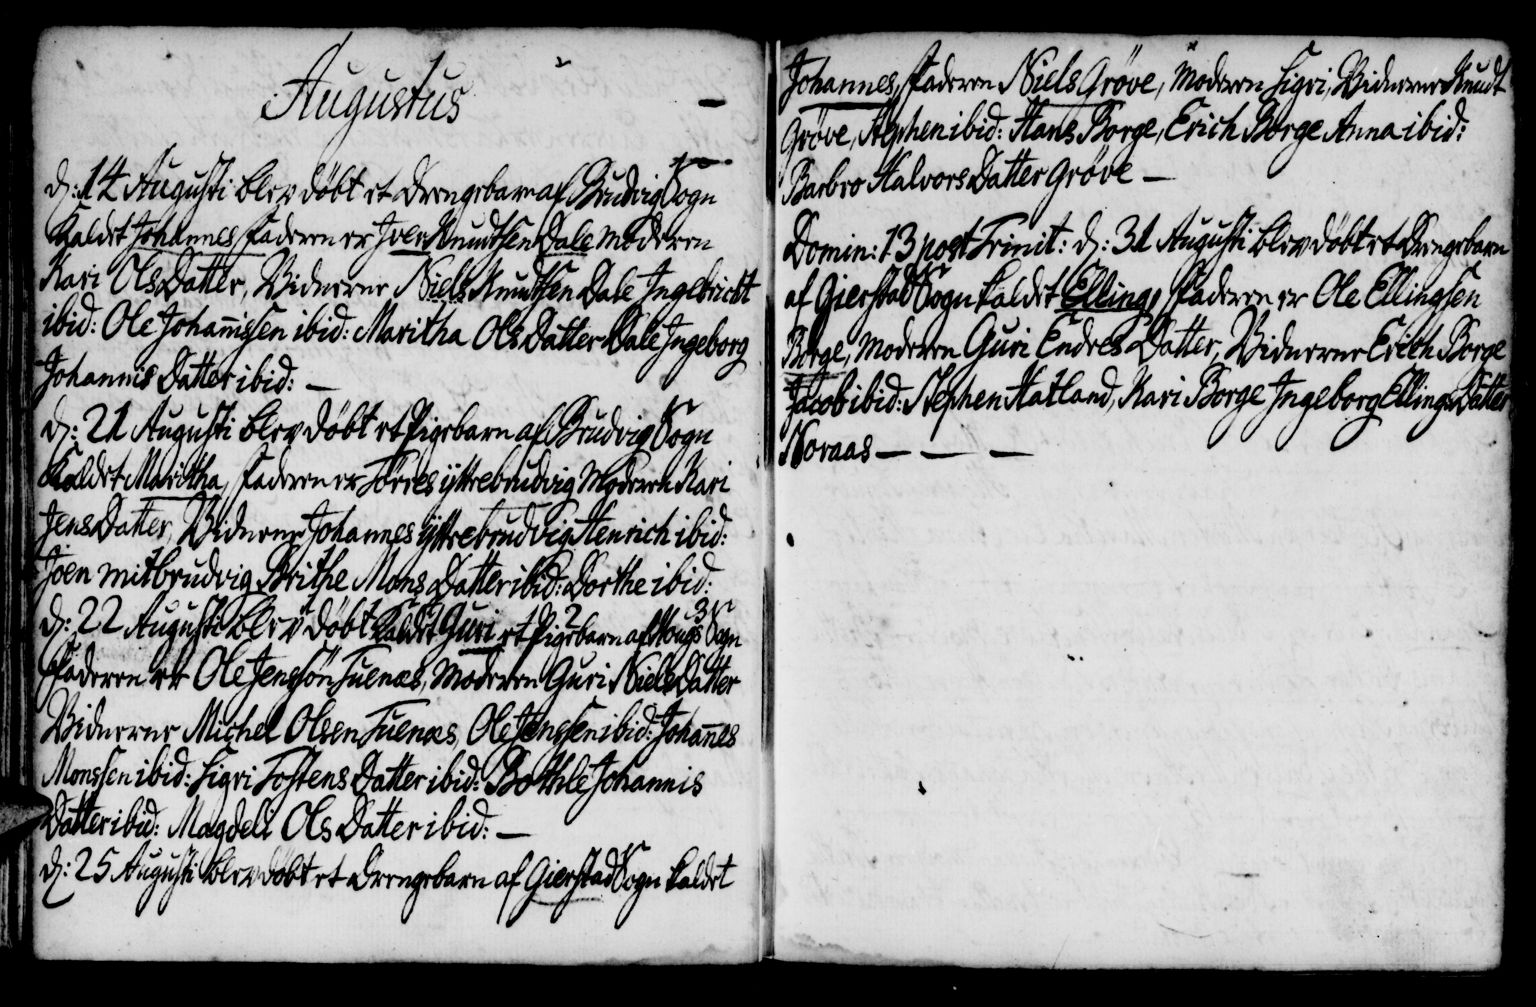 Augustus
d: 14 Augusti blev döbt et Drengebarn af Brudvig Sogn
Kaldet Johannes, Faderen er Joen Knudtsen Dale Moderen
Kari Ols Datter, Vidnerne Niels Knudtsen Dale Ingebricht
ibid: Ole Johan̄issen ibid: Maritha Ols Datter Dale Ingeborg
Johannis Datter ibid: —
d: 21 Augusti blev döbt et Pigebarn af Brudvig Sogn
Kaldet Maritha, Faderen er Torres ÿttrebrudvig Moderen Kari
Jens Datter, Vidnerne Johannes ÿttrebrudvig Henrich ibid:
Joen mitbrudvig Brithe Mons Datter ibid: Dorthe ibid:
d: 22 Augusti blev döbt Kaldet Guri et Pigebarn af Mougs Sogn
Faderen er Ole Jenssön Tuenæs, Moderen Guri Niels Datter
Vidnerne Michel Olsen Tuenæs, Ole Jenssen ibid: Johan̄es
Monssen ibid: Sigri Tostens Datter ibid: Bothle Johannis
Datter ibid: Magdeli Ols Datter ibid: —
d: 25 Augusti blev döbt et Drengebarn af Gierstad Sogn kaldet
Johannes, Faderen Niels Gröve, Moderen Sigri, Vidnerne Knudt
Gröve, Stephen ibid: Hans Borge, Erich Borge Anna ibid:
Barbro Halvors Datter Gröve —
Domin: 13 post Trinit: d: 31 Augusti blev döbt et Drengebarn
af Gierstad Sogn kaldet Elling, Faderen er Ole Ellingsen
Borge, Moderen Guri Endres Datter, Vidnerne Erich Borge
Jacob ibid: Stephen Hatland, Kari Borge Ingeborg Ellings Datter
Noraas — — —